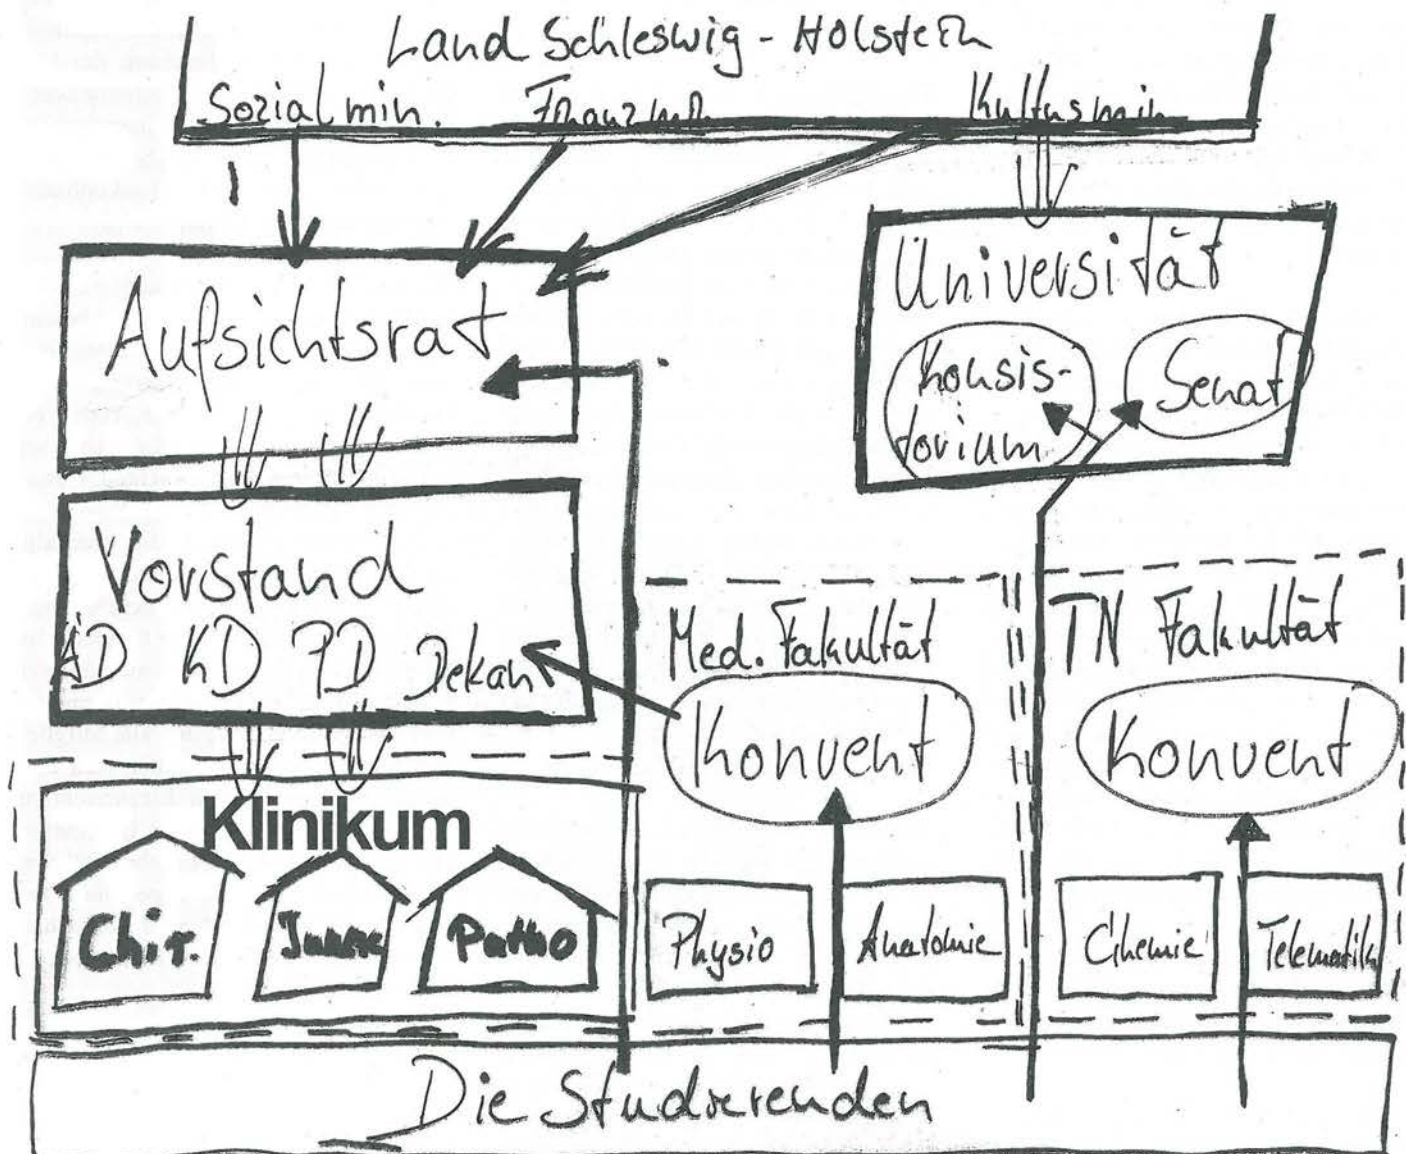 Land Schleswig-Holstein
Sozialmin. Finanzmin Kultusmin
Universität
Aufsichtsrat
Konsis-
torium
Senat
Vorstand
ÄD KD PD Dekan
Med. Fakultät
Konvent
TN Fakultät
Konvent
Klinikum
Chir. Innere Patho
Physio Anatomie
Chemie Telematik
Die Studierenden